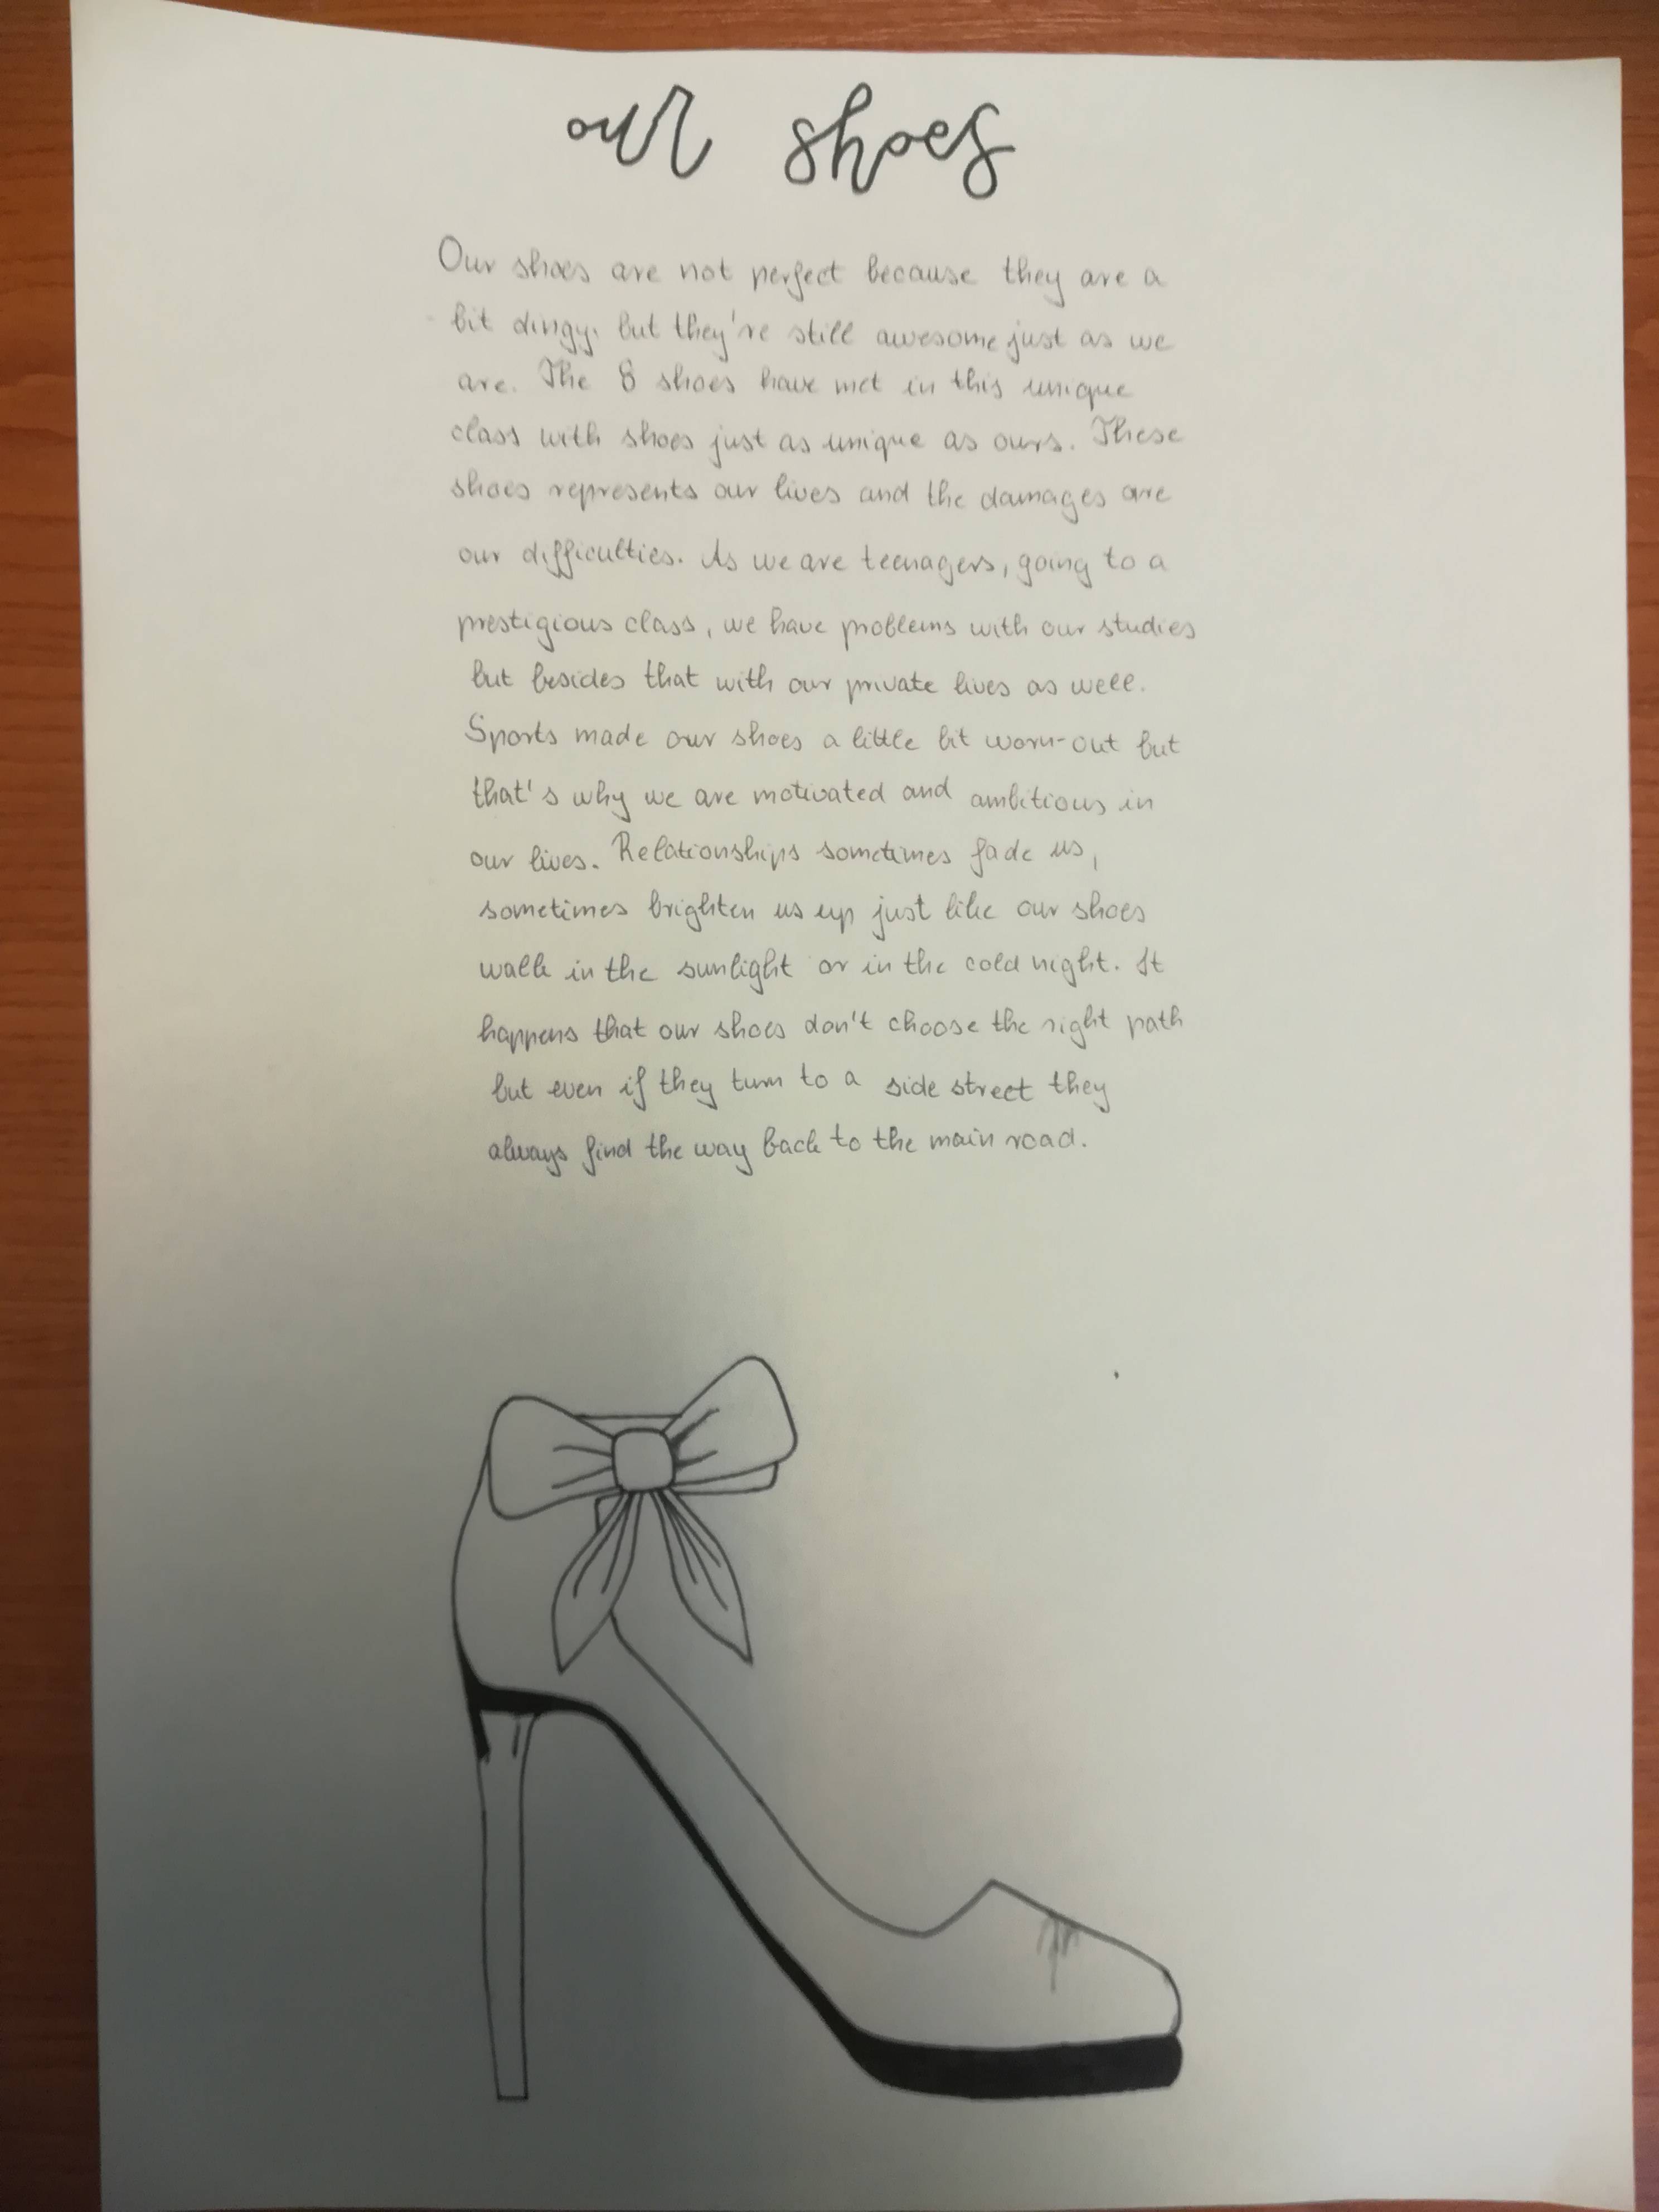 our shoes
Our shoes are not perfect because they are a
bit dingy, but they're still awesome just as we
are. The 8 shoes have met in this unique
class with shoes just as unique as ours. These
shoes represents our lives and the damages are
our difficulties. As we are teenagers, going to a
prestigious class, we have problems with our studies
but besides that with our private lives as well.
Sports made our shoes a little bit worn-out but
that's why we are motivated and ambitious in
our lives. Relationships sometimes fade us,
sometimes brighten us up just like our shoes
walk in the sunlight or in the cold night. It
happens that our shoes don't choose the right path
but even if they turn to a side street they
always find the way back to the main road.